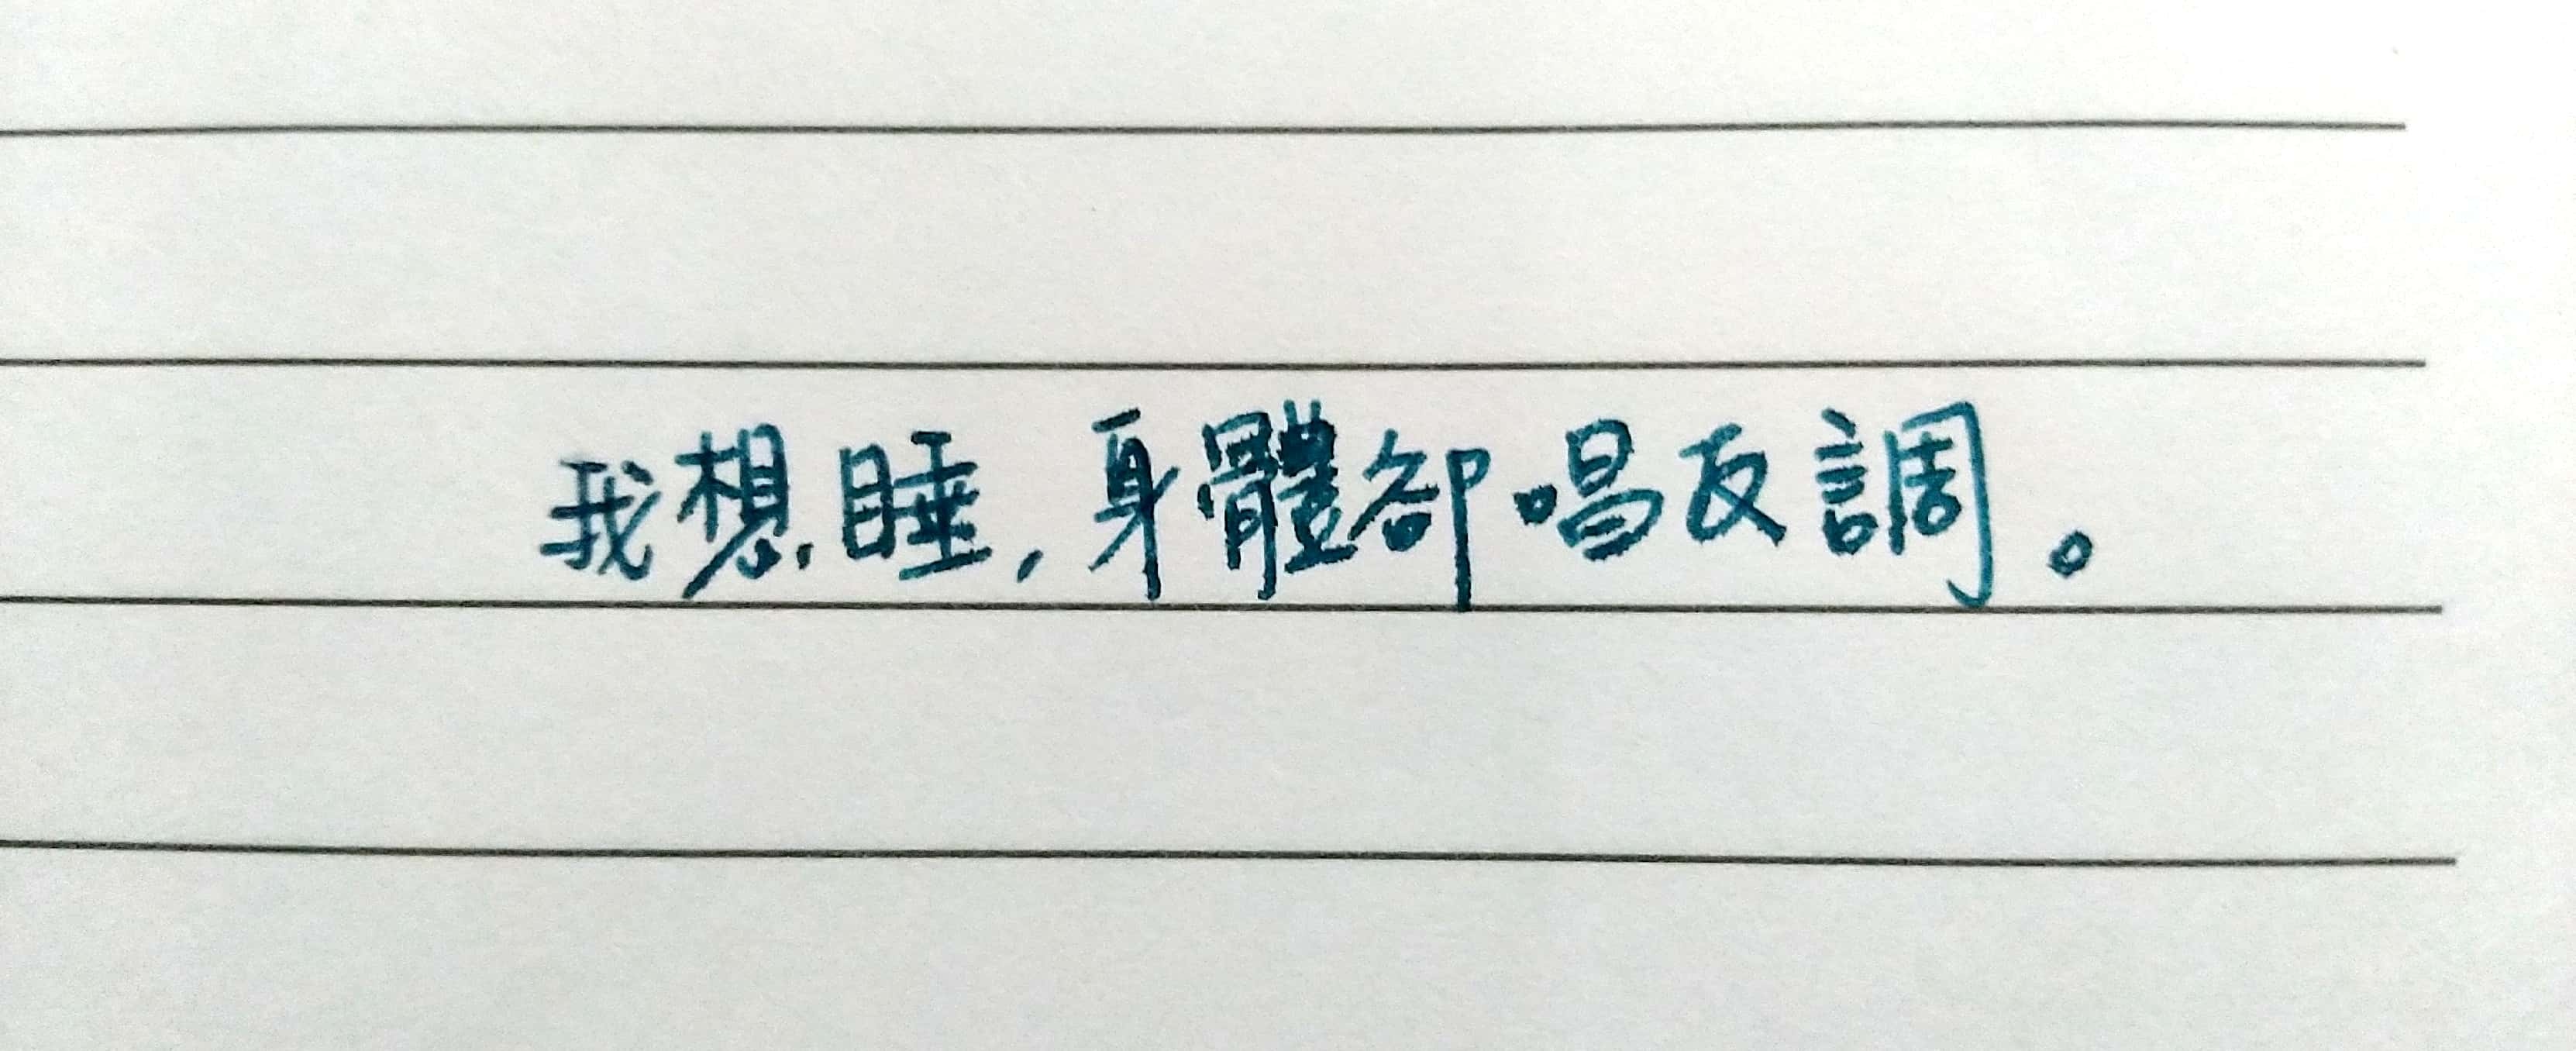 我想睡，身體卻唱反調。